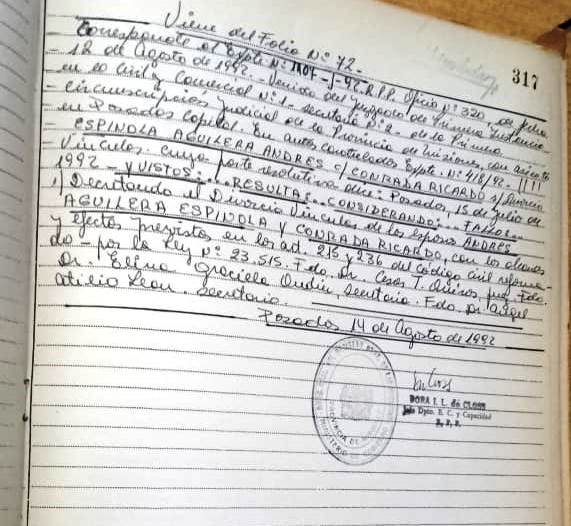 317
Viene del Folio Nº 72.-
- Corresponde al Expte Nº 1407-J-92 R.P.P. Oficio Nº 320, de fecha
- 12 de Agosto de 1992.- Venido del Juzgado de Primera Instancia
en lo Civil y Comercial Nº 1- Secretaría Nº 2- de la Primera
- Circunscripción Judicial de la Provincia de Misiones, con asiento
en Posadas Capital. En autos caratulados Expte. Nº 418/92-
- ESPINDOLA AGUILERA ANDRES c/ CONRADA RICARDO s/ Divorcio
- Vincular. Cuya parte resolutiva dice: Posadas, 15 de Julio de
1992 - Y VISTOS:... RESULTA:.. CONSIDERANDO:.. FALLO:..
1) Decretando el Divorcio Vincular de los esposos ANDRES
AGUILERA ESPINOLA Y CONRADA RICARDO, con los alcances
y efectos previstos en los art. 215 y 236 del Código Civil reforma-
do - por la Ley Nº 23.515. Fdo. Dr. Cesar T. Juez. Fdo.
Dr. Elina Graciela Secretaria. Fdo. Dr. Angel
Atilio Leon. Secretario.
Posadas 14 de Agosto de 1992
DORA I. L. de CLOSS
Jefe Dpto. E. C. y Capacidad
R. P. P.
PROVINCIA DE
MINISTERIO DE